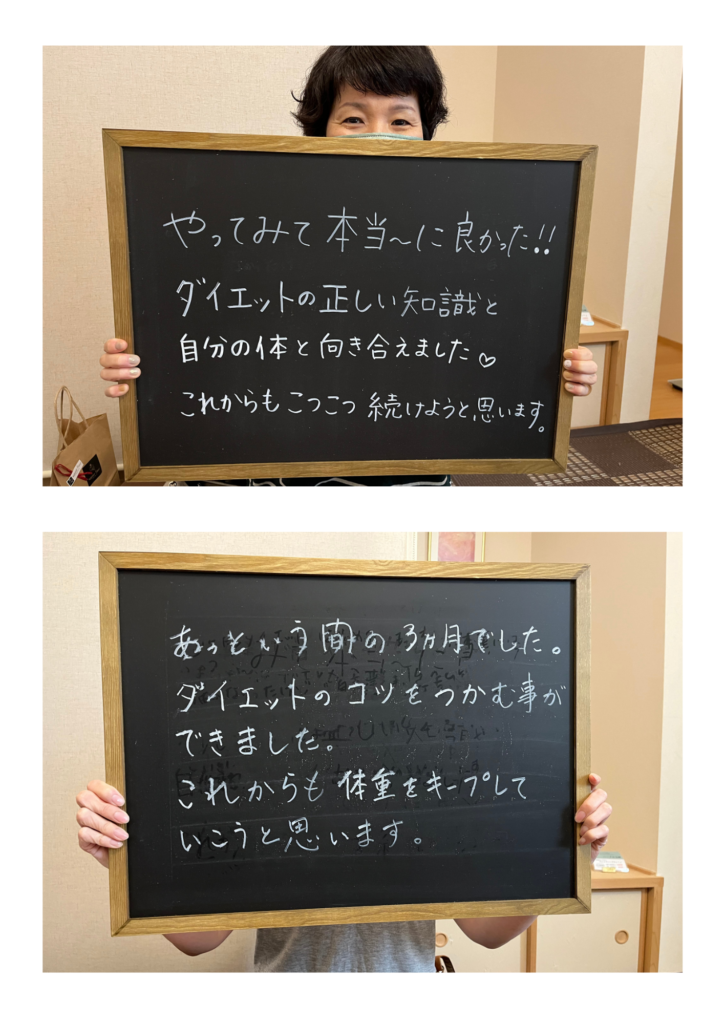 やってみて本当〜に良かった!!
ダイエットの正しい知識と
自分の体と向き合えました♡
これからもこつこつ続けようと思います。
あっという間の3ヵ月でした。
ダイエットのコツをつかむ事が
できました。
これからも体重をキープして
いこうと思います。